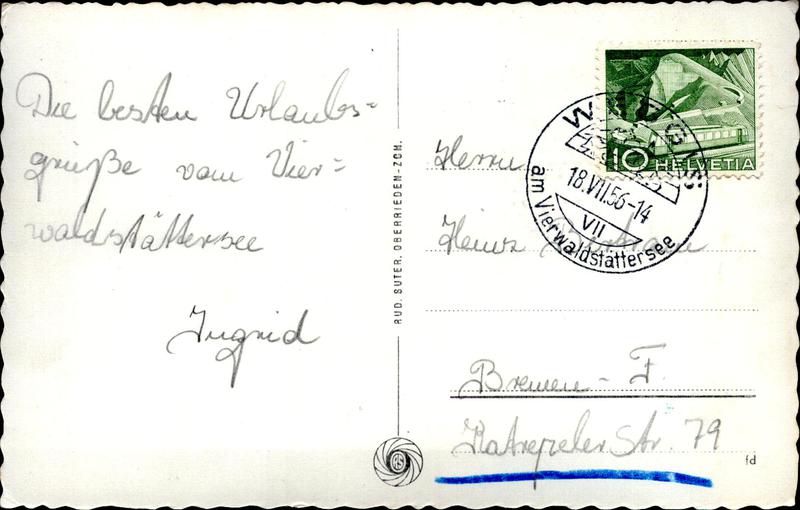 Die besten Urlaubs=
grüße vom Vier=
waldstättersee
Ingrid
RUD. SUTER, OBERRIEDEN-ZCH.
RS
10 HELVETIA
WEGGIS
18.VII.56-14
VII
am Vierwaldstättersee
Herrn
Heinz
Bremen - F.
Katrepeler Str. 79
fd